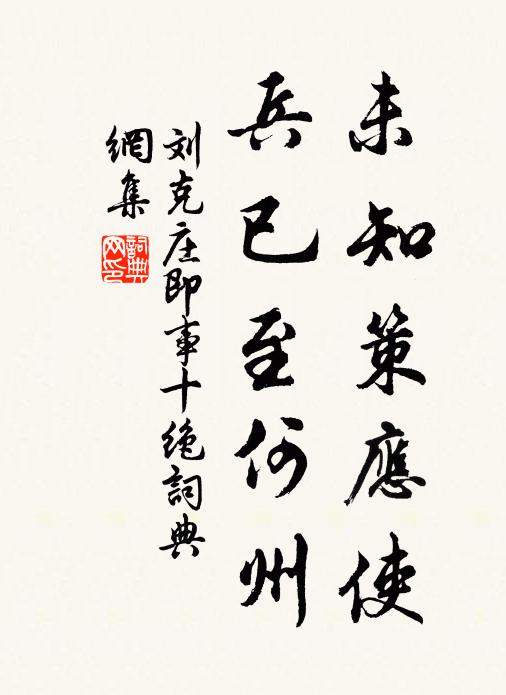 未知策應使
兵已至何州
刘克庄即事十绝詞典
網集
詞典网印